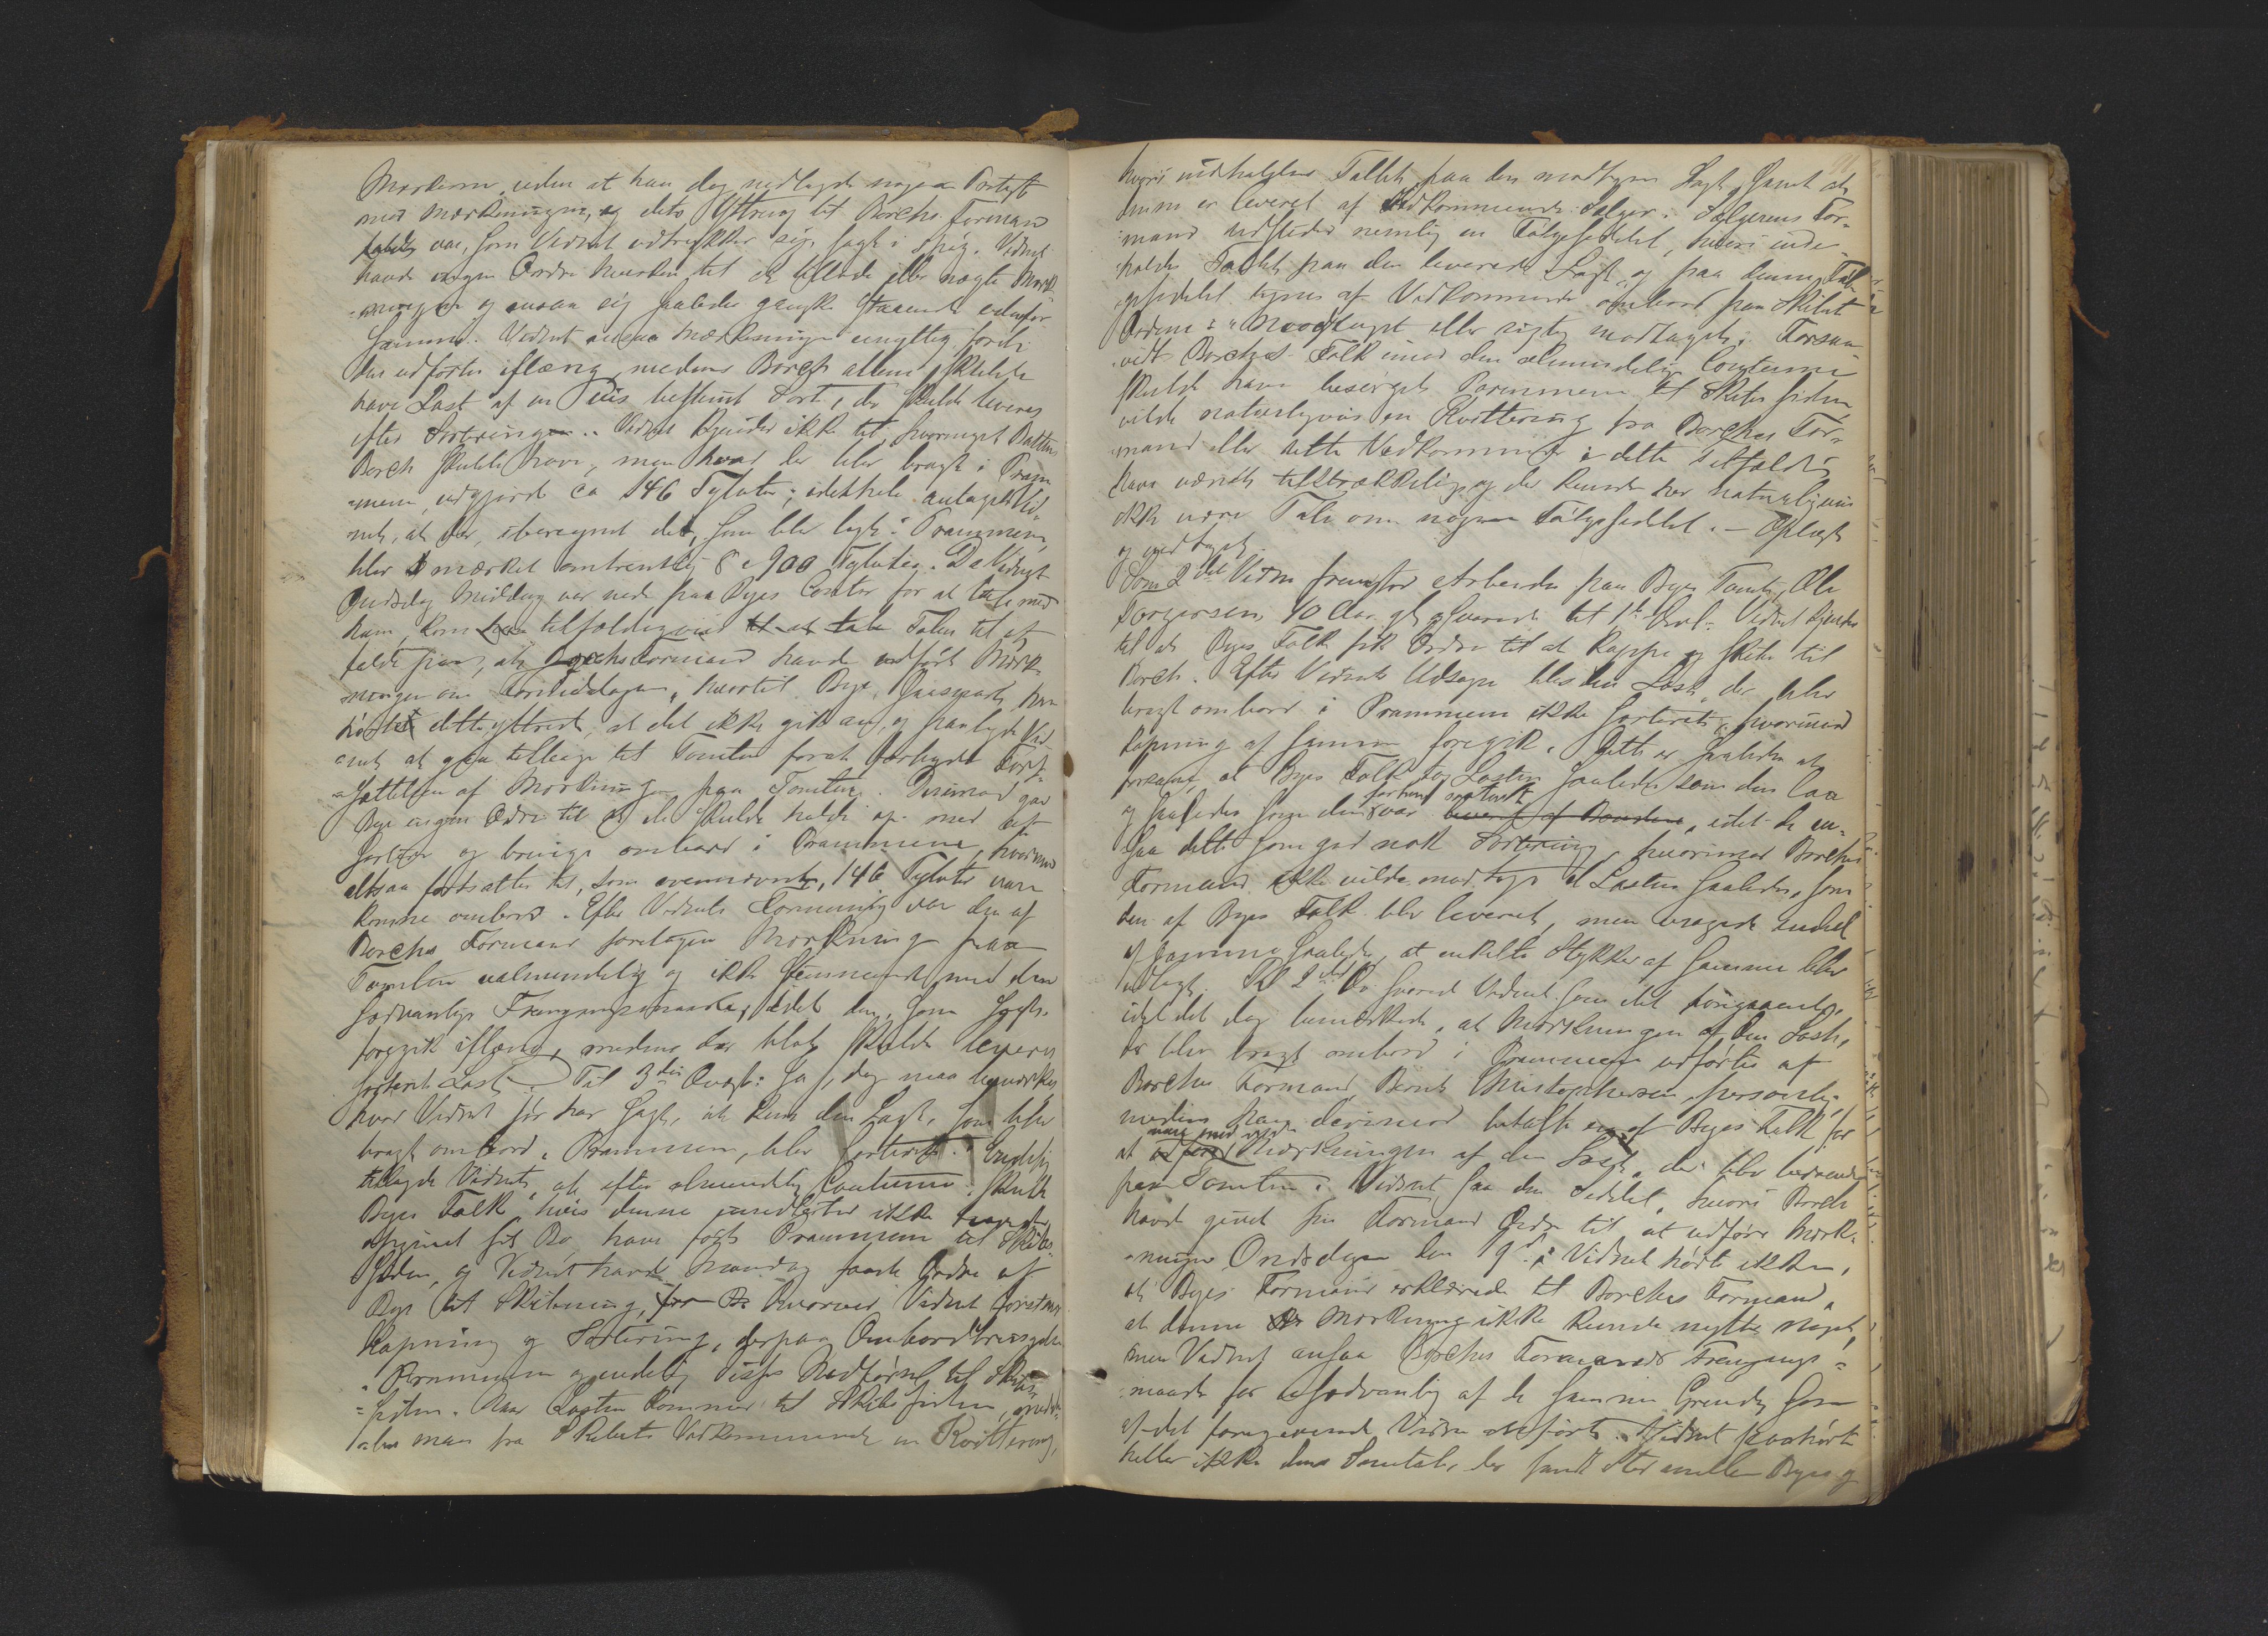 Mærkerne, uden at han dog nedlagde nogen Protest
mod Mærkningen, og dets Yttring til Borchs Formand
faldt, som Vidnet udtrykker sig, sagt i Spøg. Vidnet
havde ingen Ordre hverken til at tillade eller nægte Mærk-
ningen og ansaa sig saaledes ganske staaende udenfor
samme. Vidnet ansaa Mærkningen unyttig fordi
den udførtes iflæng, medens Borch alene skulde
have Last af en vis bestemt Sort, der skulde leveres
efter Sortering. Vidnet kjender ikke til, hvormeget Battens
Borch skulde have, men hvad der blev bragt i Pram-
mene, udgjorde ca 146 Tylvter; idethele antager Vid-
net, at der, iberegnet det, som blev lagt i Prammene,
blev mærket omtrentlig 8 a 900 Tylvter. Da Vidnet
Onsdag Middag var nede paa Byes Contor for at tale med
ham, kom tilfældigviis Talen til at
falde paa, at Borchs Formand havde udført Mærk-
ningen om Formiddagen, hvortil Bye, saasnart han
hørte dette, yttrede, at det ikke gik an, og paalagde Vid-
net at gaa tilbage til Tomten forat forbyde Fort-
sættelsen af Mærkningen paa Tomten. Derimod gav
Bye ingen Ordre til at de skulde holde op med at
sortere og bringe ombord i Prammene, hvormed
altsaa fortsattes til, som ovennævnt, 146 Tylvter vare
komne ombord. Efter Vidnets Formening var den af
Borchs Formand foretagne Mærkning paa
Tomten ualmindelig og ikke stemmende med den
sædvanlige Fremgangsmaade, idet den, som sagt,
foregik iflæng, medens der blot skulde leveres
sorteret Last. Til 3die Qvæst: Ja, dog maa bemærkes
hvad Vidnet før har sagt, at kun den Last, som blev
bragt ombord i Prammene, blev sorteret. Endelig
tillagde Vidnet, at efter almindelig Coutume skulde
Byes Folk, hvis denne imidlertid ikke havde
opgivet sit Bo, have ført Prammene til Skibs-
siden, og Vidnet havde Mandag faaet Ordre af
Bye til Skibning, hvorved Vidnet forstaar
Kapning og Sortering, derpaa Ombordbringelse
i Prammene og endelig disses Nedførsel til Skibs-
siden. Naar Lasten kommer til Skibssiden, modta-
ger man fra Skibets Vedkommende en Kvittering,
hvori indeholdes Tallet paa den modtagne Last, samt at
denne er leveret af Vedkommende Sælger. Sælgerens For-
mand udsteder nemlig en Følgeseddel, hvori inde-
holdes Tallet paa den leverede Last, og paa denne Føl-
geseddel tegnes af Vedkommende ombord paa Skibet
Ordene: "Modtaget" eller rigtig modtaget. Forsaa-
vidt Borchs Folk imod den almindelige Coutume
skulde have besørget Prammene til Skibssiden,
vilde naturligvis en Kvittering fra Borchs For-
mand eller rette Vedkommende i dette Tilfælde
have været tilstrækkelig, og der kunde her naturligvis
ikke være Tale om nogen Følgeseddel. – Oplæst
og vedtaget.
Som 2det Vidne fremstod Arbeider paa Byes Tomt, Ole
Torgersen, 40 Aar gl. og svarede til 1ste Qvæst: Vidnet kjender
til at Byes Folk fik Ordre til at kappe og skibe til
Borch. Efter Vidnets Udsagn blev den Last, der blev
bragt ombord i Prammene ikke sorteret, hvorimod
Kapning af samme foregik. Dette er saaledes at
forstaa, at Byes Folk tog Lasten saaledes som den laa
og saaledes som den forhen sorteret var leveret af Bonden, idet de an-
saa dette som god nok Sortering, hvorimod Borchs
Formand ikke vilde modtage al Lasten saaledes, som
den af Byes Folk blev leveret, men vragede endel
af samme saaledes, at enkelte Stykker af samme blev
udlagt. Til 2det Do svared Vidnet som det foregaaende,
idet det dog bemærkede, at Mærkningen af den Last,
der blev bragt ombord i Prammene udførtes af
Borchs Formand, Bernt Christophersen, personlig,
medens han derimod betalte en af Byes Folk for
at være med ved Mærkningen af den Last, der blev beroende
paa Tomten. Vidnet saa den Seddel, hvori Borch
havde givet sin Formand Ordre til at udføre Mærk-
ningen Onsdagen den 19de; Vidnet hørte ikke,
at Byes Formand erklærede til Borchs Formand,
at denne Mærkning ikke kunde nytte noget,
men Vidnet ansaa Borchs Formands Fremgangs-
maade for usædvanlig af de samme Grunde, som
af det foregaaende Vidne anført. Vidnet paahørte
heller ikke den Samtale, der fandt Sted mellem Byes og